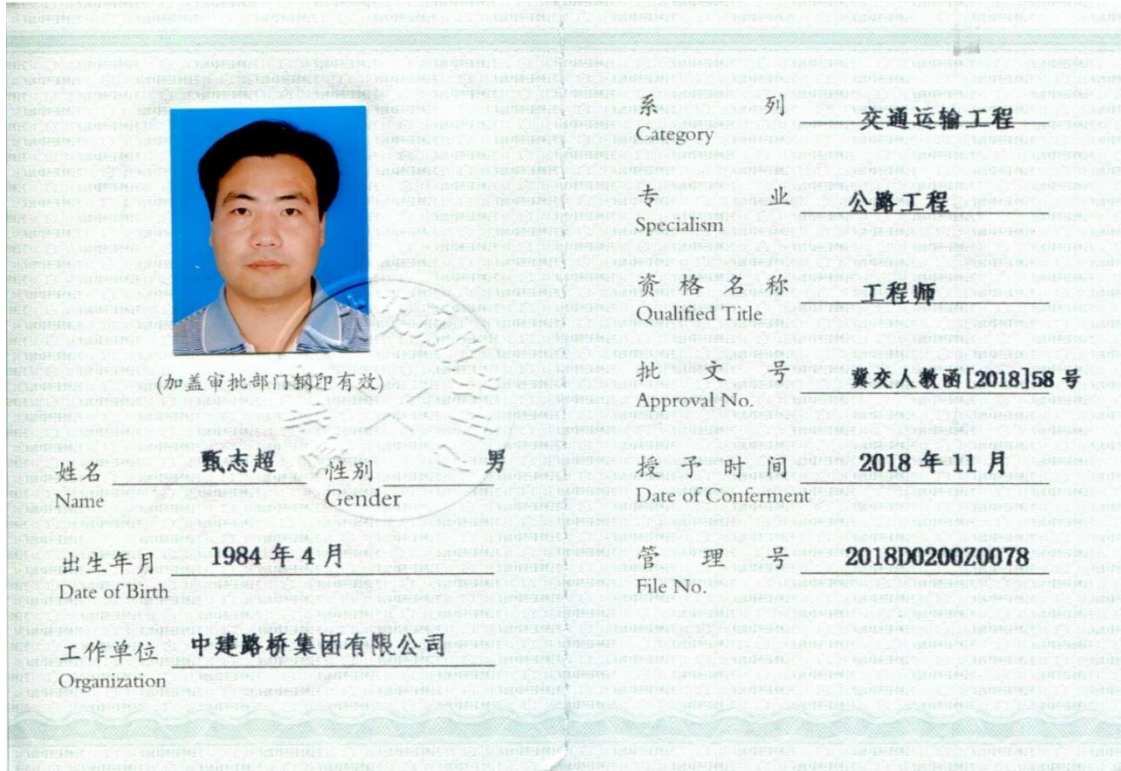 (加盖审批部门钢印有效)
姓名 甄志超 性别 男
Name Gender
出生年月 1984 年 4 月
Date of Birth
工作单位 中建路桥集团有限公司
Organization
系列 交通运输工程
Category
专业 公路工程
Specialism
资格名称 工程师
Qualified Title
批文号 冀交人教函[2018]58 号
Approval No.
授予时间 2018 年 11 月
Date of Conferment
管理号 2018D0200Z0078
File No.